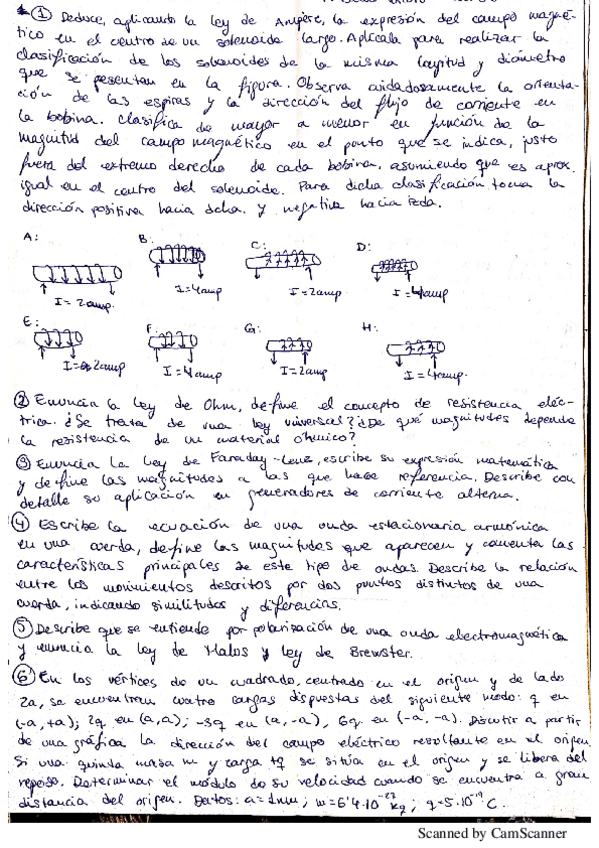 ① Deduce, aplicando la ley de Ampére, la expresión del campo magné-
tico en el centro de un solenoide largo. Aplícala para realizar la
clasificación de los solenoides de la misma longitud y diámetro
que se presentan en la figura. Observa cuidadosamente la orienta-
ción de las espiras y la dirección del flujo de corriente en
la bobina. Clasifica de mayor a menor en función de la
magnitud del campo magnético en el punto que se indica, justo
fuera del extremo derecho de cada bobina, asumiendo que es aprox.
igual en el centro del solenoide. Para dicha clasificación toma la
dirección positiva hacia dcha. y negativa hacia izda.
A: B: C: D:
I=2amp. I=4amp I=2amp. I=4amp
E: F: G: H:
I=2amp I=4amp I=2amp I=4amp.
② Enuncia la ley de Ohm, define el concepto de resistencia eléc-
trica. ¿Se trata de una ley universal? ¿De qué magnitudes depende
la resistencia de un material óhmico?
③ Enuncia la ley de Faraday-Lenz, escribe su expresión matemática
y define las magnitudes a las que hace referencia. Describe con
detalle su aplicación en generadores de corriente alterna.
④ Escribe la ecuación de una onda estacionaria armónica
en una cuerda, define las magnitudes que aparecen y comenta las
características principales de este tipo de ondas. Describe la relación
entre los movimientos descritos por dos puntos distintos de una
cuerda, indicando similitudes y diferencias.
⑤ Describe que se entiende por polarización de una onda electromagnética
y enuncia la ley de Malus y ley de Brewster.
⑥ En los vértices de un cuadrado, centrado en el origen y de lado
2a, se encuentran cuatro cargas dispuestas del siguiente modo: q en
(-a,+a); 2q en (a,a); -3q en (a,-a), 6q en (-a,-a). Discutir a partir
de una gráfica la dirección del campo eléctrico resultante en el origen.
Si una quinta masa m y carga +q se sitúa en el origen y se libera del
reposo. Determinar el módulo de su velocidad cuando se encuentra a gran
distancia del origen. Datos: a=1mm; m=6'4·10⁻²⁷ kg; q=5·10⁻¹⁹ C.
Scanned by CamScanner